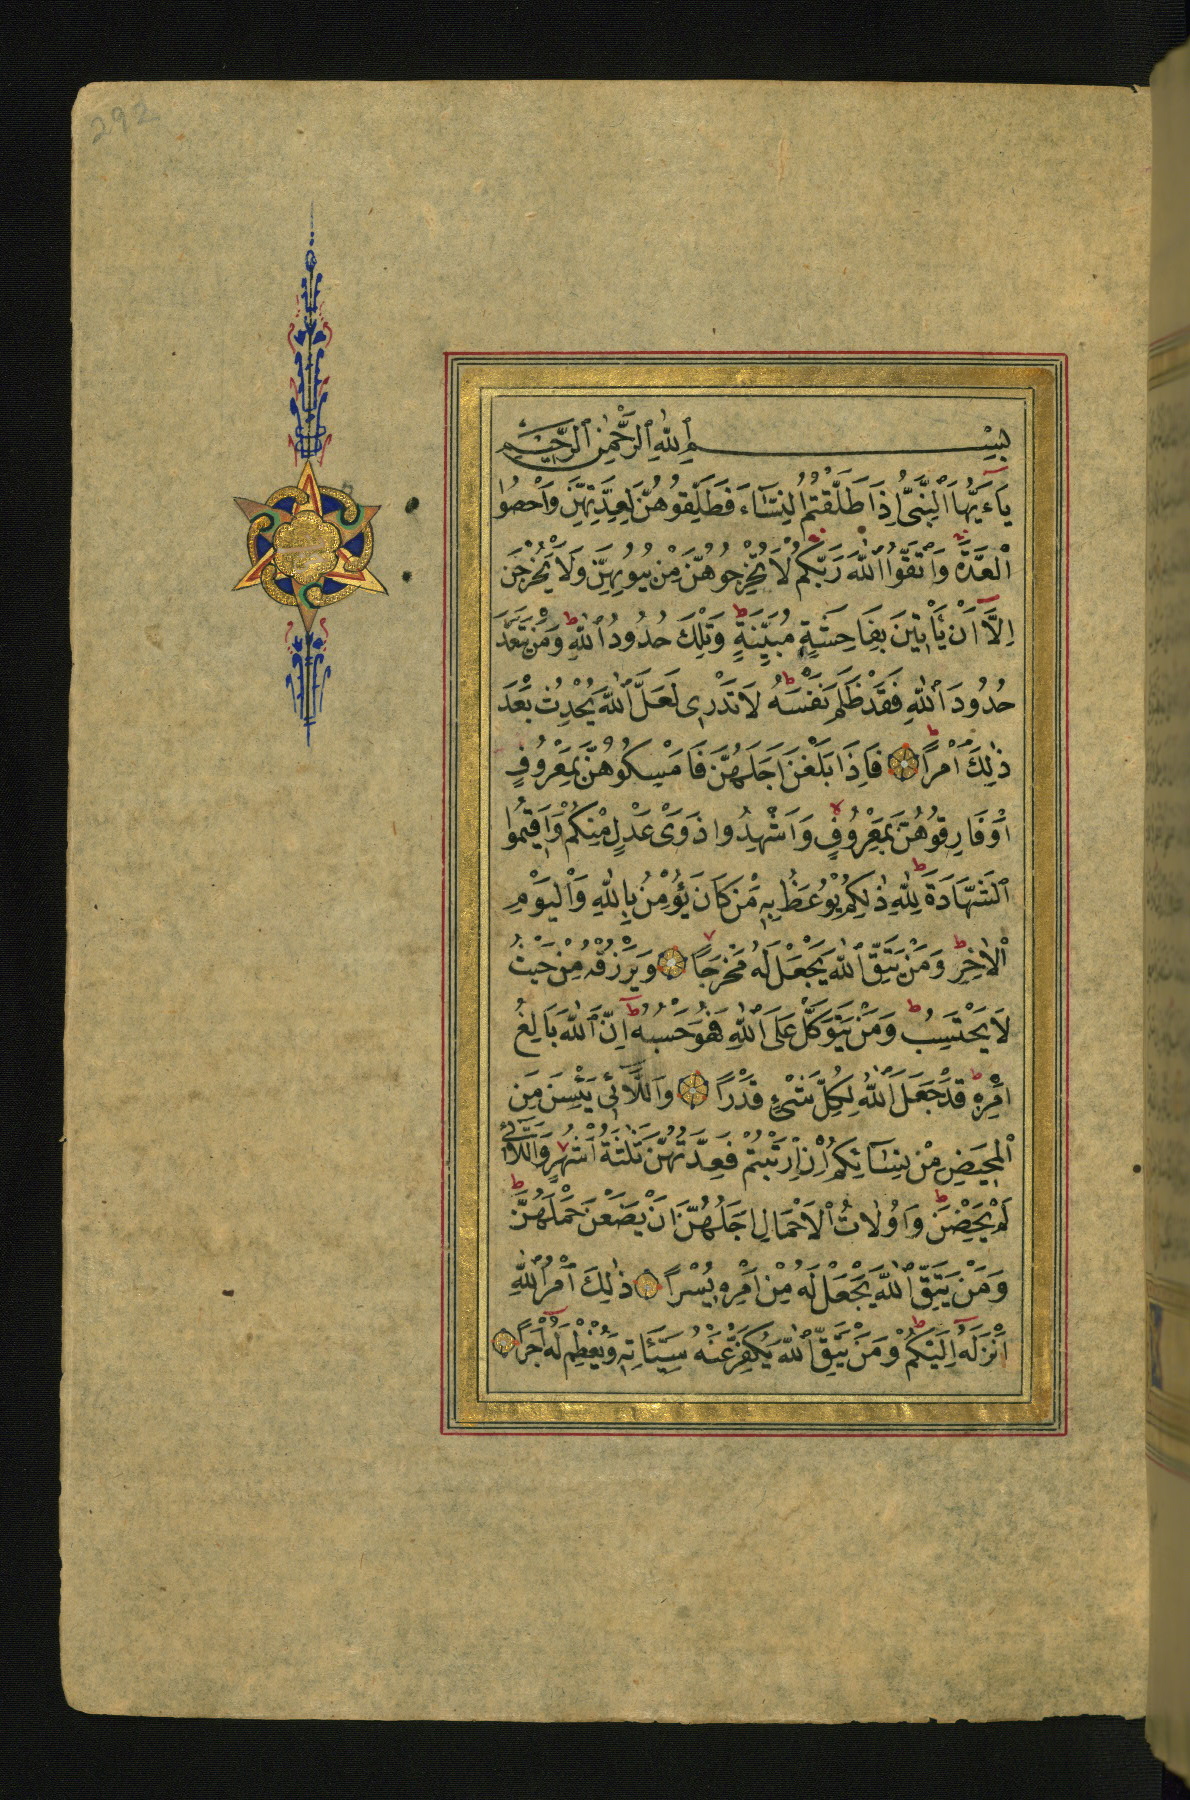 292
بِسْمِ ٱللّٰهِ ٱلرَّحْمٰنِ ٱلرَّحِيمِ
يَاءَيُّهَا ٱلنَّبِيُّ إِذَا طَلَّقْتُمُ ٱلنِّسَاءَ فَطَلِّقُوهُنَّ لِعِدَّتِهِنَّ وَأَحْصُوا
ٱلْعِدَّةَ وَٱتَّقُوا ٱللّٰهَ رَبَّكُمْ لَا تُخْرِجُوهُنَّ مِنْ بُيُوتِهِنَّ وَلَا يَخْرُجْنَ
اِلَّا اَنْ يَأْتِينَ بِفَاحِشَةٍ مُبَيِّنَةٍ وَتِلْكَ حُدُودُ ٱللّٰهِ وَمَنْ يَتَعَدَّ
حُدُودَ ٱللّٰهِ فَقَدْ ظَلَمَ نَفْسَهُ لَا تَدْرِى لَعَلَّ ٱللّٰهَ يُحْدِثُ بَعْدَ
ذٰلِكَ اَمْرًا فَاِذَا بَلَغْنَ اَجَلَهُنَّ فَاَمْسِكُوهُنَّ بِمَعْرُوفٍ
اَوْ فَارِقُوهُنَّ بِمَعْرُوفٍ وَاَشْهِدُوا ذَوَىْ عَدْلٍ مِنْكُمْ وَاَقِيمُوا
ٱلشَّهَادَةَ لِلّٰهِ ذٰلِكُمْ يُوعَظُ بِهِ مَنْ كَانَ يُؤْمِنُ بِاللّٰهِ وَٱلْيَوْمِ
ٱلْاٰخِرِ وَمَنْ يَتَّقِ ٱللّٰهَ يَجْعَلْ لَهُ مَخْرَجًا وَيَرْزُقْهُ مِنْ حَيْثُ
لَا يَحْتَسِبُ وَمَنْ يَتَوَكَّلْ عَلَى ٱللّٰهِ فَهُوَ حَسْبُهُ اِنَّ ٱللّٰهَ بَالِغُ
اَمْرِهِ قَدْ جَعَلَ ٱللّٰهُ لِكُلِّ شَىْءٍ قَدْرًا وَاللَّائِى يَئِسْنَ مِنَ
ٱلْمَحِيضِ مِنْ نِسَائِكُمْ اِنِ ارْتَبْتُمْ فَعِدَّتُهُنَّ ثَلٰثَةُ اَشْهُرٍ وَاللَّائِى
لَمْ يَحِضْنَ وَاُولَاتُ ٱلْاَحْمَالِ اَجَلُهُنَّ اَنْ يَضَعْنَ حَمْلَهُنَّ
وَمَنْ يَتَّقِ ٱللّٰهَ يَجْعَلْ لَهُ مِنْ اَمْرِهِ يُسْرًا ذٰلِكَ اَمْرُ ٱللّٰهِ
اَنْزَلَهُ اِلَيْكُمْ وَمَنْ يَتَّقِ ٱللّٰهَ يُكَفِّرْ عَنْهُ سَيِّئَاتِهِ وَيُعْظِمْ لَهُ اَجْرًا